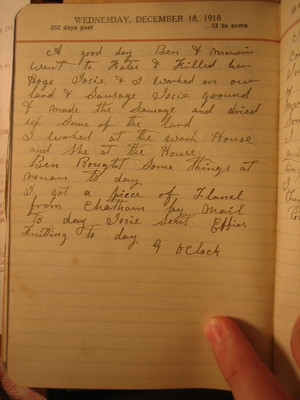 WEDNESDAY, DECEMBER 18, 1918
352 days past 13 to come
A good day Ben &
went to Kates & Killed her
Hogs Josie & I worked on our
lard & Sausage Josie ground
& made the sausage and diced
up some of the lard
I worked at the wash House
and she at the House
Ben Bought some things at
to day
I got a piece of Flanel
from Chatham by Mail
To day Josie Sent Effies
Knitting to day
9 OClock